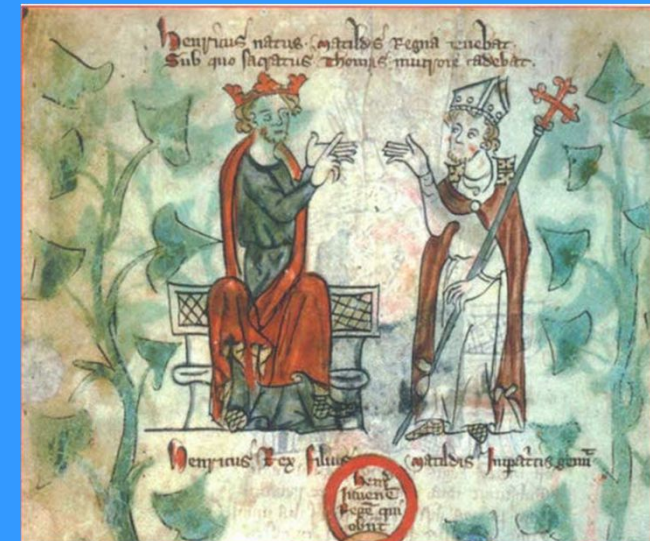 Henricus natus Matildis Regna tenebat
Sub quo sacratus Thomas mucrone cadebat.
Henricus Rex filius Matildis Inpatcis
Henr
Iuvene
Rege qui
obiit